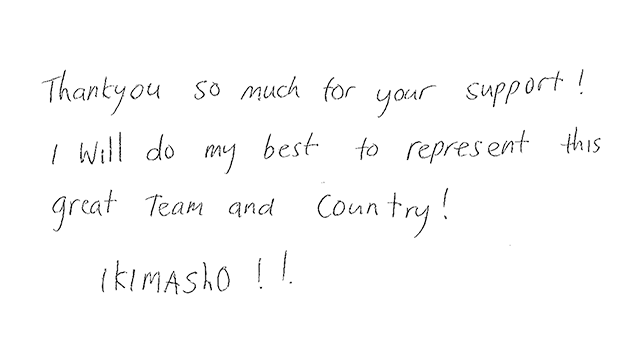 Thankyou so much for your support!
I Will do my best to represent this
great Team and Country!
IKIMAShO!!